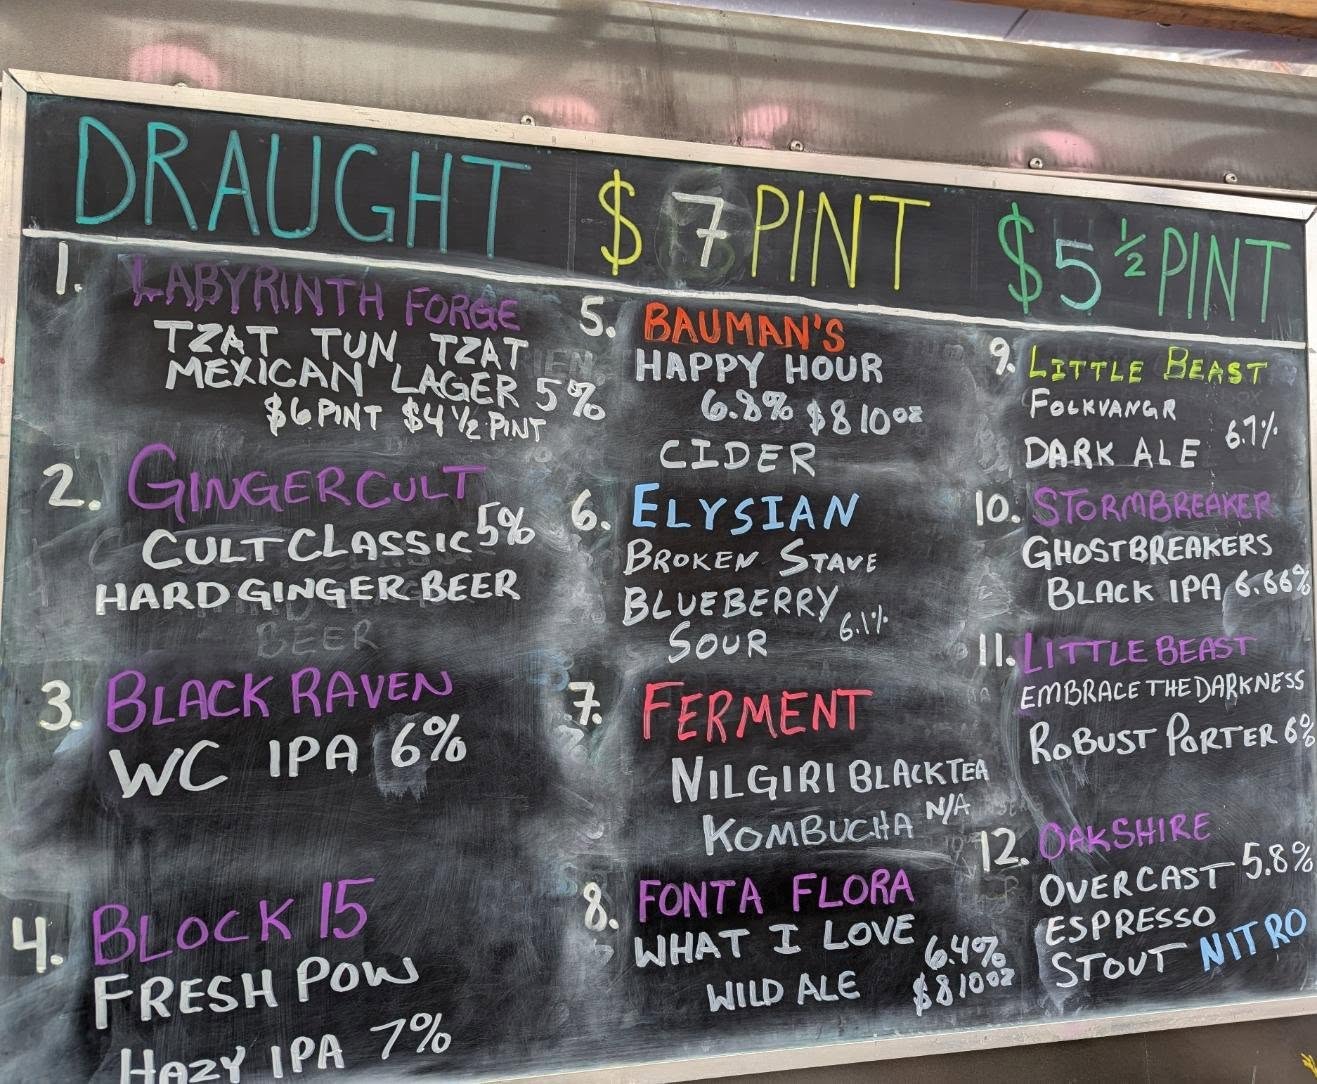 DRAUGHT $7 PINT $5 ½ PINT
1. LABYRINTH FORGE
TZAT TUN TZAT
MEXICAN LAGER 5%
$6 PINT $4 ½ PINT
2. GINGERCULT
CULT CLASSIC 5%
HARD GINGER BEER
BEER
3. BLACK RAVEN
WC IPA 6%
4. BLOCK 15
FRESH POW
HAZY IPA 7%
5. BAUMAN'S
HAPPY HOUR
6.8% $8 10oz
CIDER
6. ELYSIAN
BROKEN STAVE
BLUEBERRY
SOUR 6.1%
7. FERMENT
NILGIRI BLACK TEA
KOMBUCHA N/A
8. FONTA FLORA
WHAT I LOVE
6.4%
WILD ALE $8 10oz
9. LITTLE BEAST
FOLKVANGR
DARK ALE 6.7%
10. STORMBREAKER
GHOSTBREAKERS
BLACK IPA 6.66%
11. LITTLE BEAST
EMBRACE THE DARKNESS
ROBUST PORTER 6%
12. OAKSHIRE
OVERCAST 5.8%
ESPRESSO
STOUT NITRO